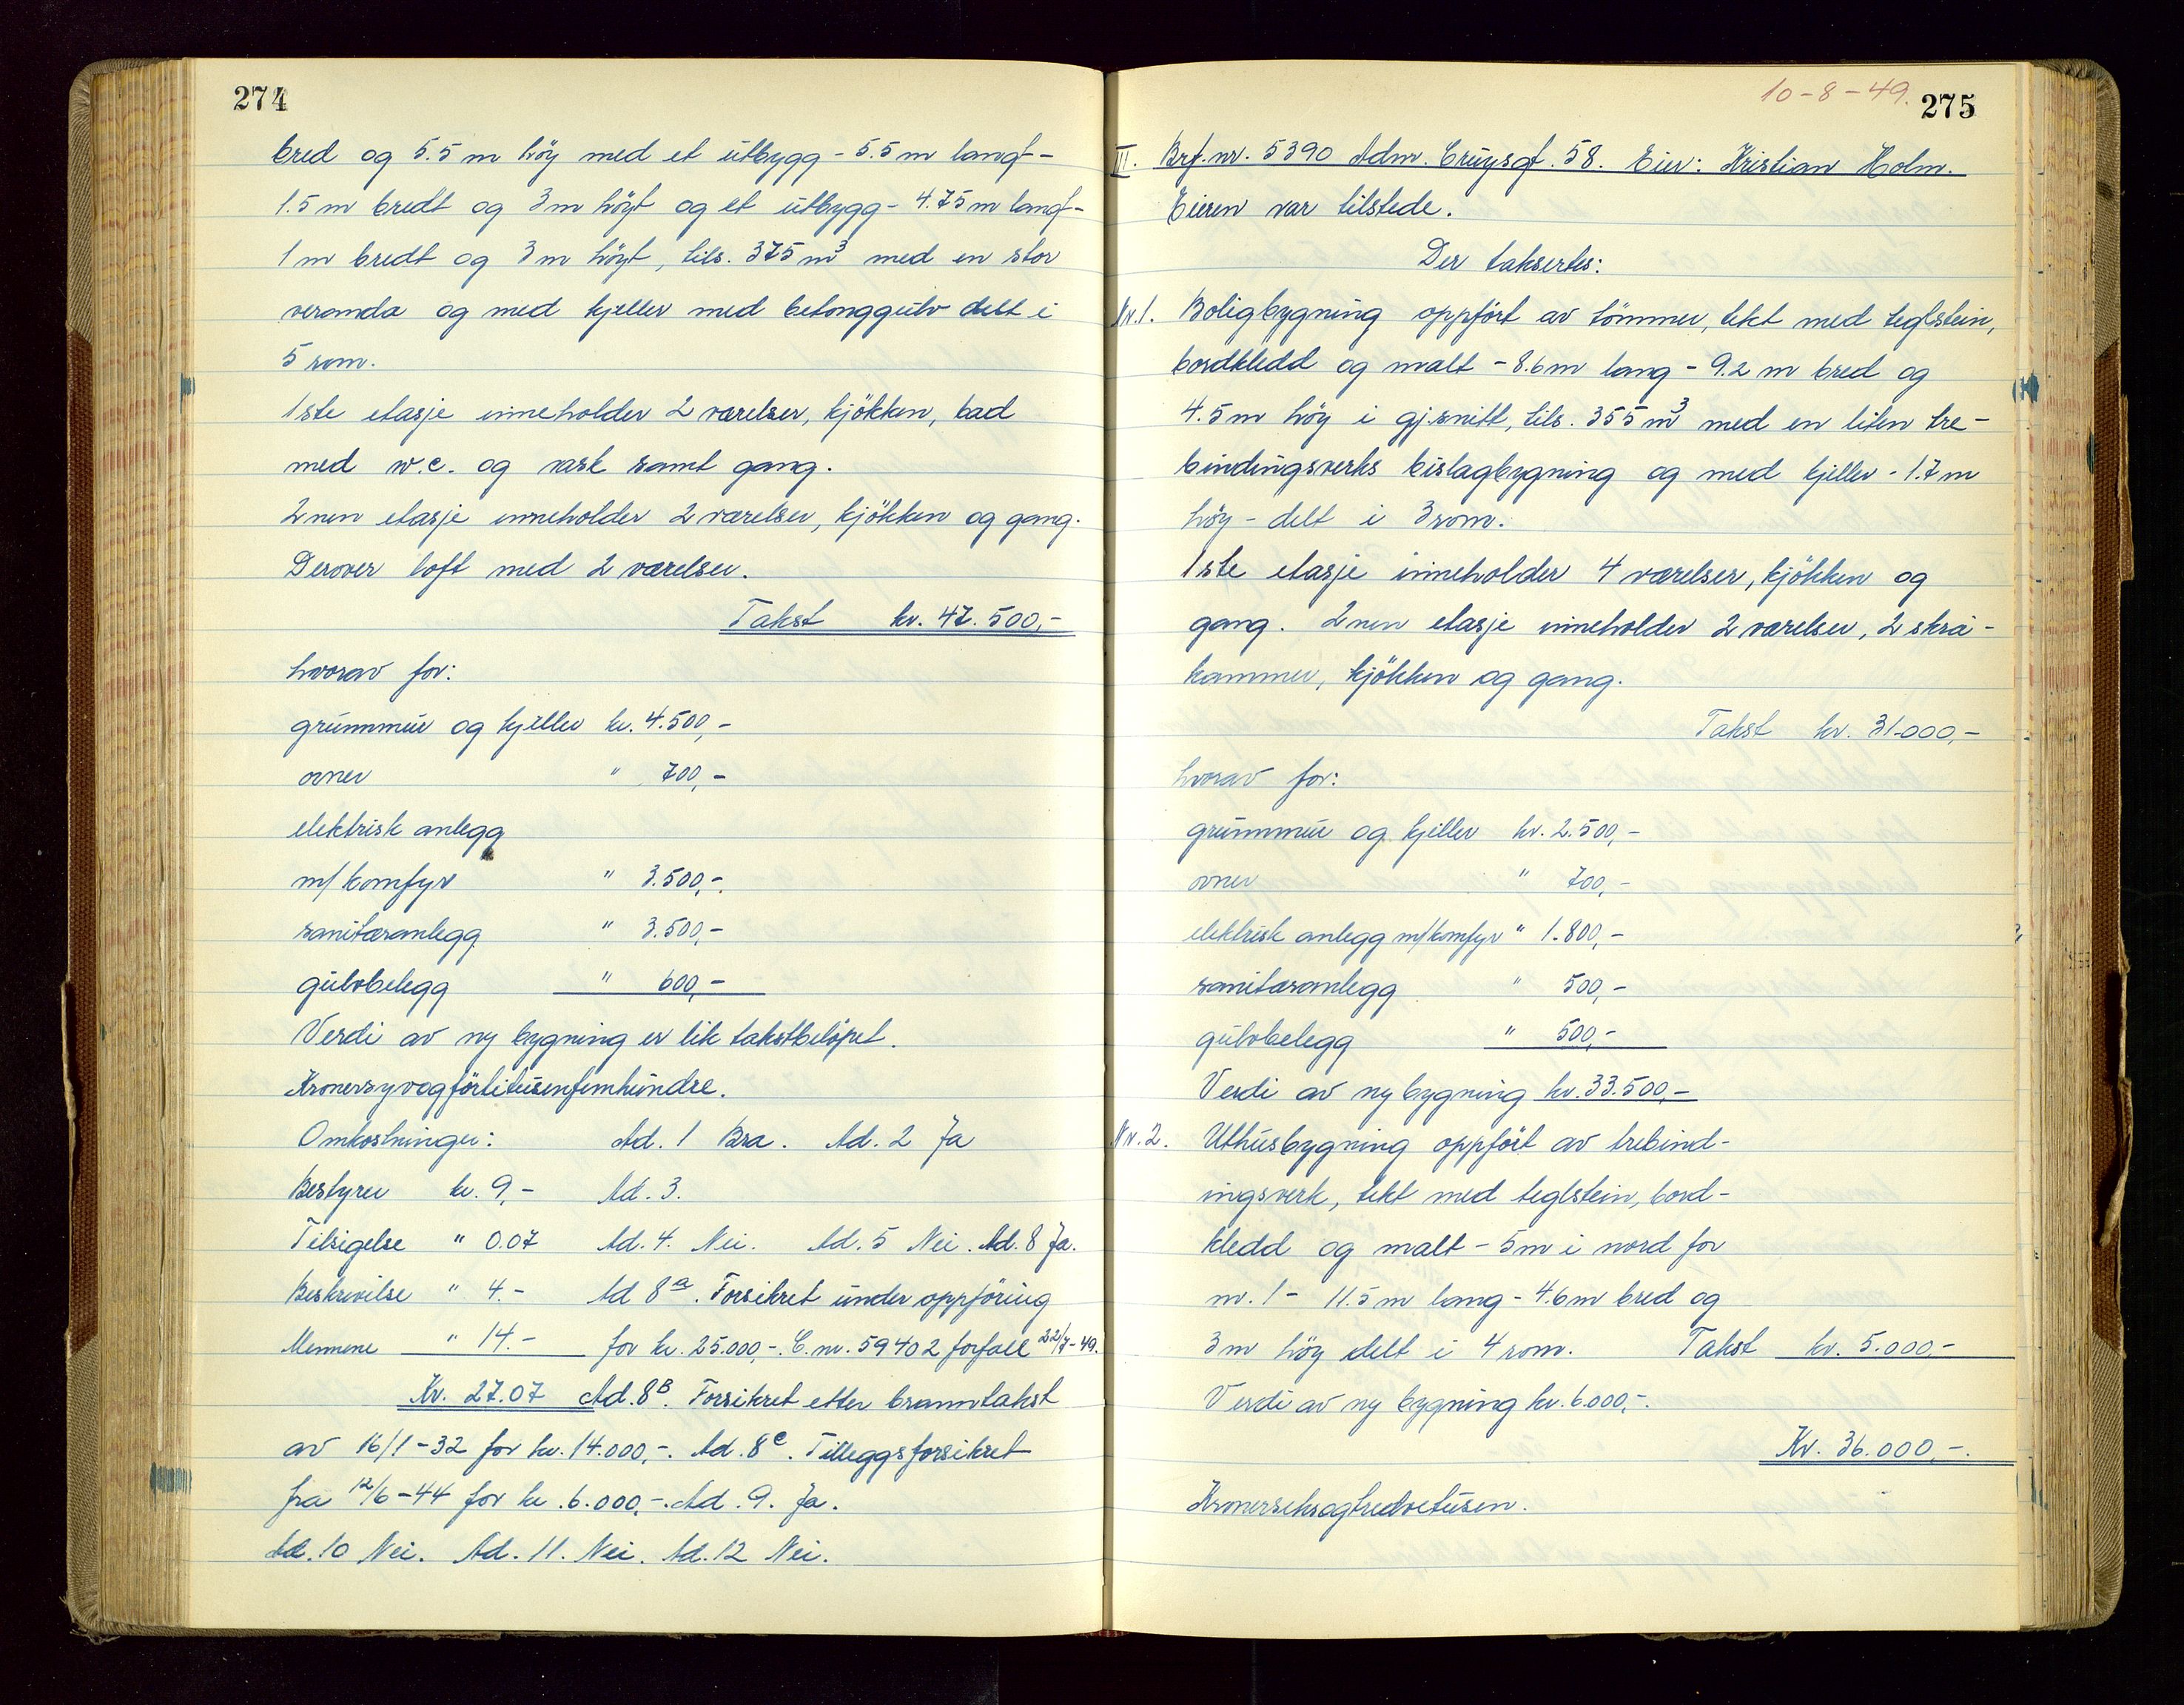 274
bred og 5.5 m höy med et utbygg - 5.5 m langt -
1.5 m bredt og 3 m höyt og et utbygg - 4.75 m langt -
1 m bredt og 3 m höyt, tils. 375 m³ med en stor
veranda og med kjeller med betonggulv delt i
5 rom.
1ste etasje inneholder 2 værelser, kjökken, bad
med w.c. og vask samt gang.
2nen etasje inneholder 2 værelser, kjökken og gang.
Derover loft med 2 værelser.
Takst kr. 47.500,-
hvorav for:
grunnmur og kjeller kr. 4.500,-
ovner " 700,-
elektrisk anlegg
m/ komfyr " 3.500,-
sanitæranlegg " 3.500,-
gulvbelegg " 600,-
Verdi av ny bygning er lik takstbelöpet.
Kronersyvogförtitusenfemhundre.
Omkostninger: Ad. 1 Bra. Ad. 2 Ja
Bestyrer kr. 9,- Ad. 3.
Tilsigelse " 0.07 Ad. 4. Nei. Ad. 5 Nei. Ad. 8 Ja.
Beskrivelse " 4.- Ad 8ᵃ. Forsikret under oppföring
Mennene " 14.- for kr. 25.000,-. C.nr. 59402 forfall 22/7-49.
Kr. 27.07 Ad. 8ᴮ. Forsikret etter branntakst
av 16/1-32 for kr. 14.000,-. Ad. 8ᶜ. Tilleggsforsikret
fra 12/6-44 for kr. 6.000,-. Ad. 9. Ja.
Ad. 10 Nei. Ad. 11. Nei. Ad. 12 Nei.
10-8-49.
275
III. Brf.nr. 5390 Adm. Cruysgt. 58. Eier: Kristian Holm.
Eieren var tilstede.
Der taksertes:
Nr. 1. Boligbygning oppfört av tömmer, tekt med teglstein,
bordkledd og malt - 8.6 m lang - 9.2 m bred og
4.5 m höy i gj.snitt, tils. 355 m³ med en liten tre-
bindingsverks bislagbygning og med kjeller - 1.7 m
höy - delt i 3 rom.
1ste etasje inneholder 4 værelser, kjökken og
gang. 2nen etasje inneholder 2 værelser, 2 skrå-
kammer, kjökken og gang.
Takst kr. 31.000,-
hvorav for:
grunnmur og kjeller kr. 2.500,-
ovner " 700,-
elektrisk anlegg m/komfyr " 1.800,-
sanitæranlegg " 500,-
gulvbelegg " 500,-
Verdi av ny bygning kr. 33.500,-
Nr. 2. Uthusbygning oppfört av trebind-
ingsverk, tekt med teglstein, bord-
kledd og malt - 5 m i nord for
nr. 1 - 11.5 m lang - 4.6 m bred og
3 m höy delt i 4 rom. Takst kr. 5.000,-
Verdi av ny bygning kr. 6.000,-.
Kr. 36.000,-.
Kronerseksogtredvetusen.